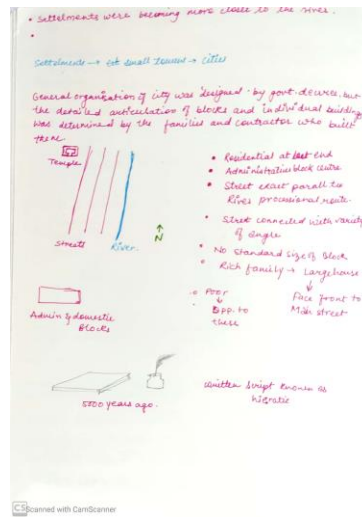 • Settelments were becoming more close to the river.
•
Settelments → small towns → cities
General organization of city was designed by govt. decrees, but
the detailed articulation of blocks and individual buildings
was determined by the families and contractor who built
them.
Temple
Streets
River.
N
• Residential at east end
• Administrative block centre
• Street exact parall to
River processional route.
• Street connected with variety
of angle
• No standard size of Block
• Rich family → Large house
↓
Face front to
Main street
• Poor
↓
Opp. to
these
Admin & domestic
Blocks
5000 years ago.
written script known as
hieratic
CS Scanned with CamScanner